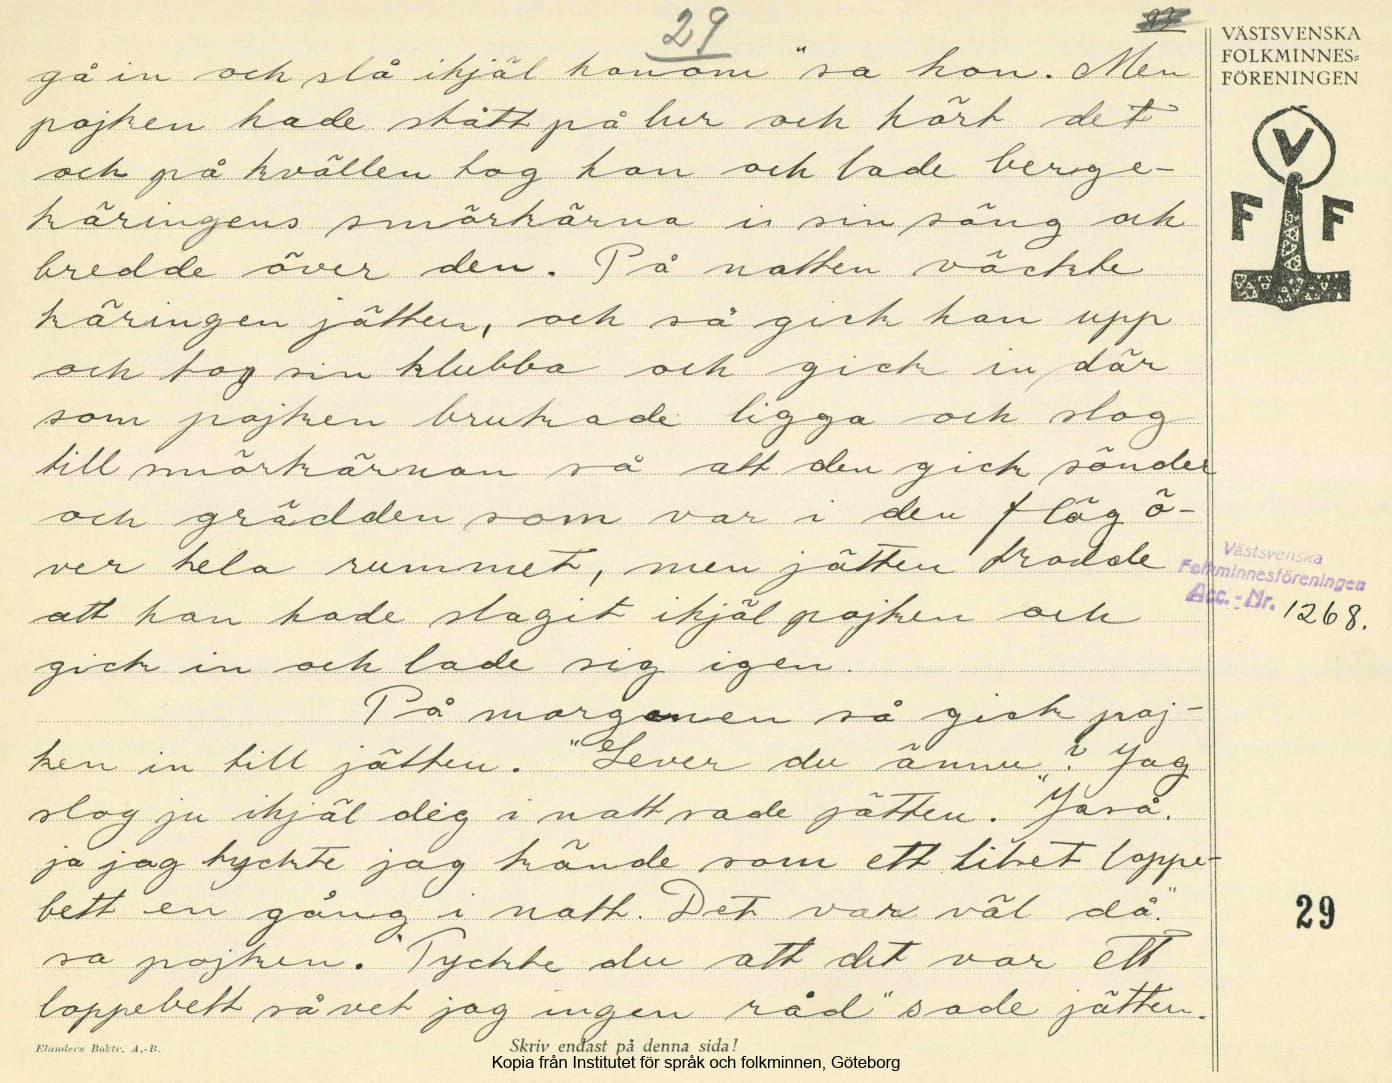 29
VÄSTSVENSKA
FOLKMINNES-
FÖRENINGEN
V
F F
gå in och slå ihjäl honom" sa hon. Men
pojken hade stått på lur och hört det
och på kvällen tog han och lade berge-
käringens smörkärna i sin säng och
bredde över den. På natten väckte
käringen jätten, och så gick han upp
och tog sin klubba och gick in där
som pojken brukade ligga och slog
till smörkärnan så att den gick sönder
och grädden som var i den flög ö-
ver hela rummet, men jätten trodde
att han hade slagit ihjäl pojken och
gick in och lade sig igen.
På morgonen så gick poj-
ken in till jätten. "Lever du ännu? Jag
slog ju ihjäl dig i natt sade jätten. "Jaså.
ja jag tyckte jag kände som ett litet loppe-
bett en gång i natt. Det var väl då."
sa pojken. "Tyckte du att det var ett
loppebett så vet jag ingen råd" sade jätten.
Västsvenska
Folkminnesföreningen
Acc.-Nr. 1268.
29
Elanders Boktr. A.-B.
Skriv endast på denna sida!
Kopia från Institutet för språk och folkminnen, Göteborg